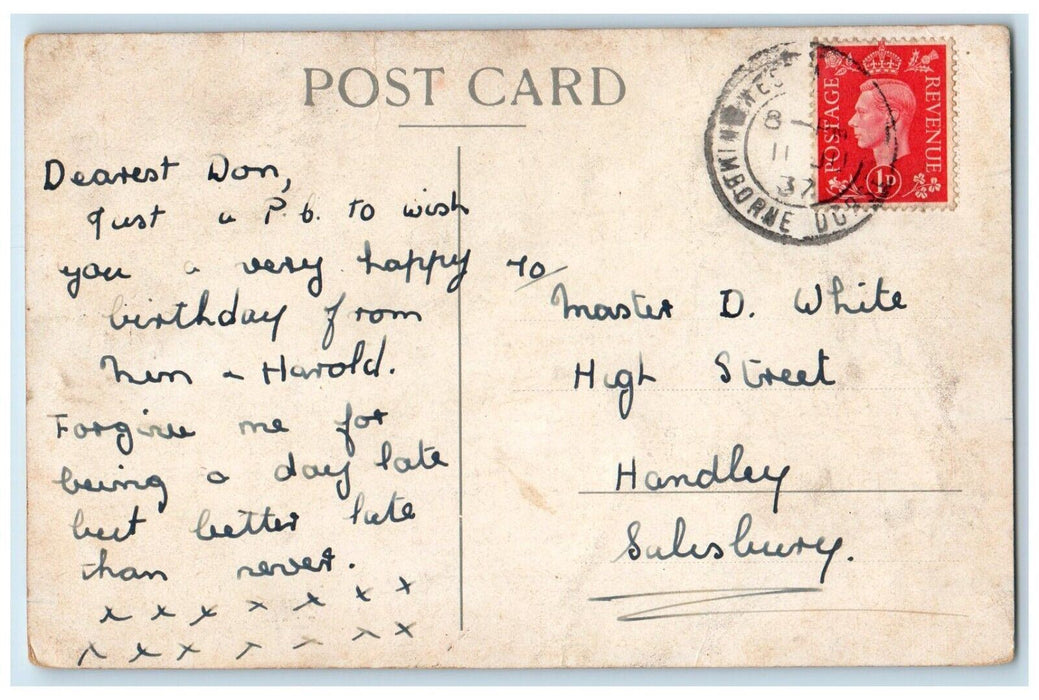 POST CARD
POSTAGE REVENUE
1D
8
11
37
WIMBORNE
Dearest Don,
Just a P.C. to wish
you a very happy
birthday from
& Harold.
Forgive me for
being a day late
but better late
than never.
x x x x x x x
x x x x x x x
To/
Master D. White
High Street
Handley
Salisbury.